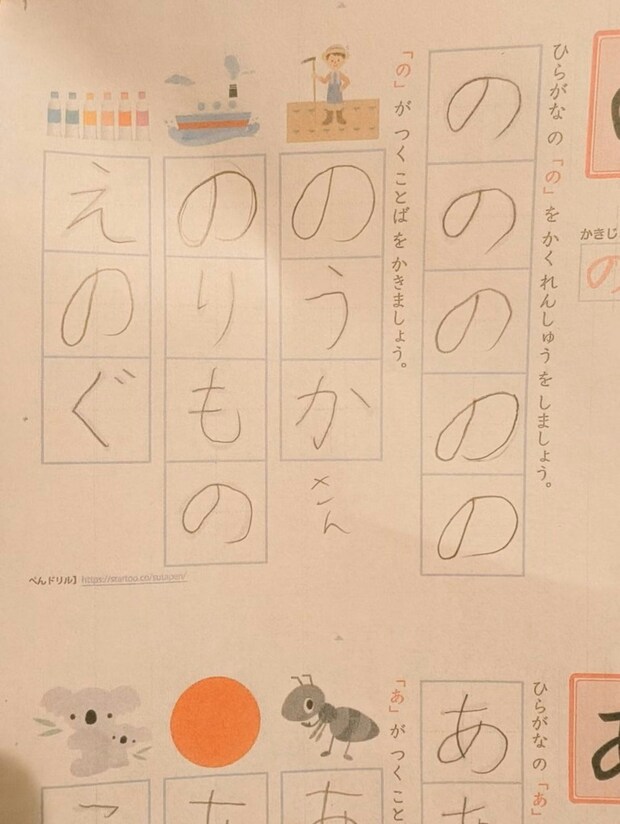 ひらがな の 「の」を かく れんしゅう を しましょう。
の
の
の
の
の
「の」が つく ことば を かきましょう。
のうかさん
のりもの
えのぐ
ぺんドリル】https://startoo.co/suuipen/
かきじ
の
ひらがな の 「あ」
あ
「あ」が つく こと